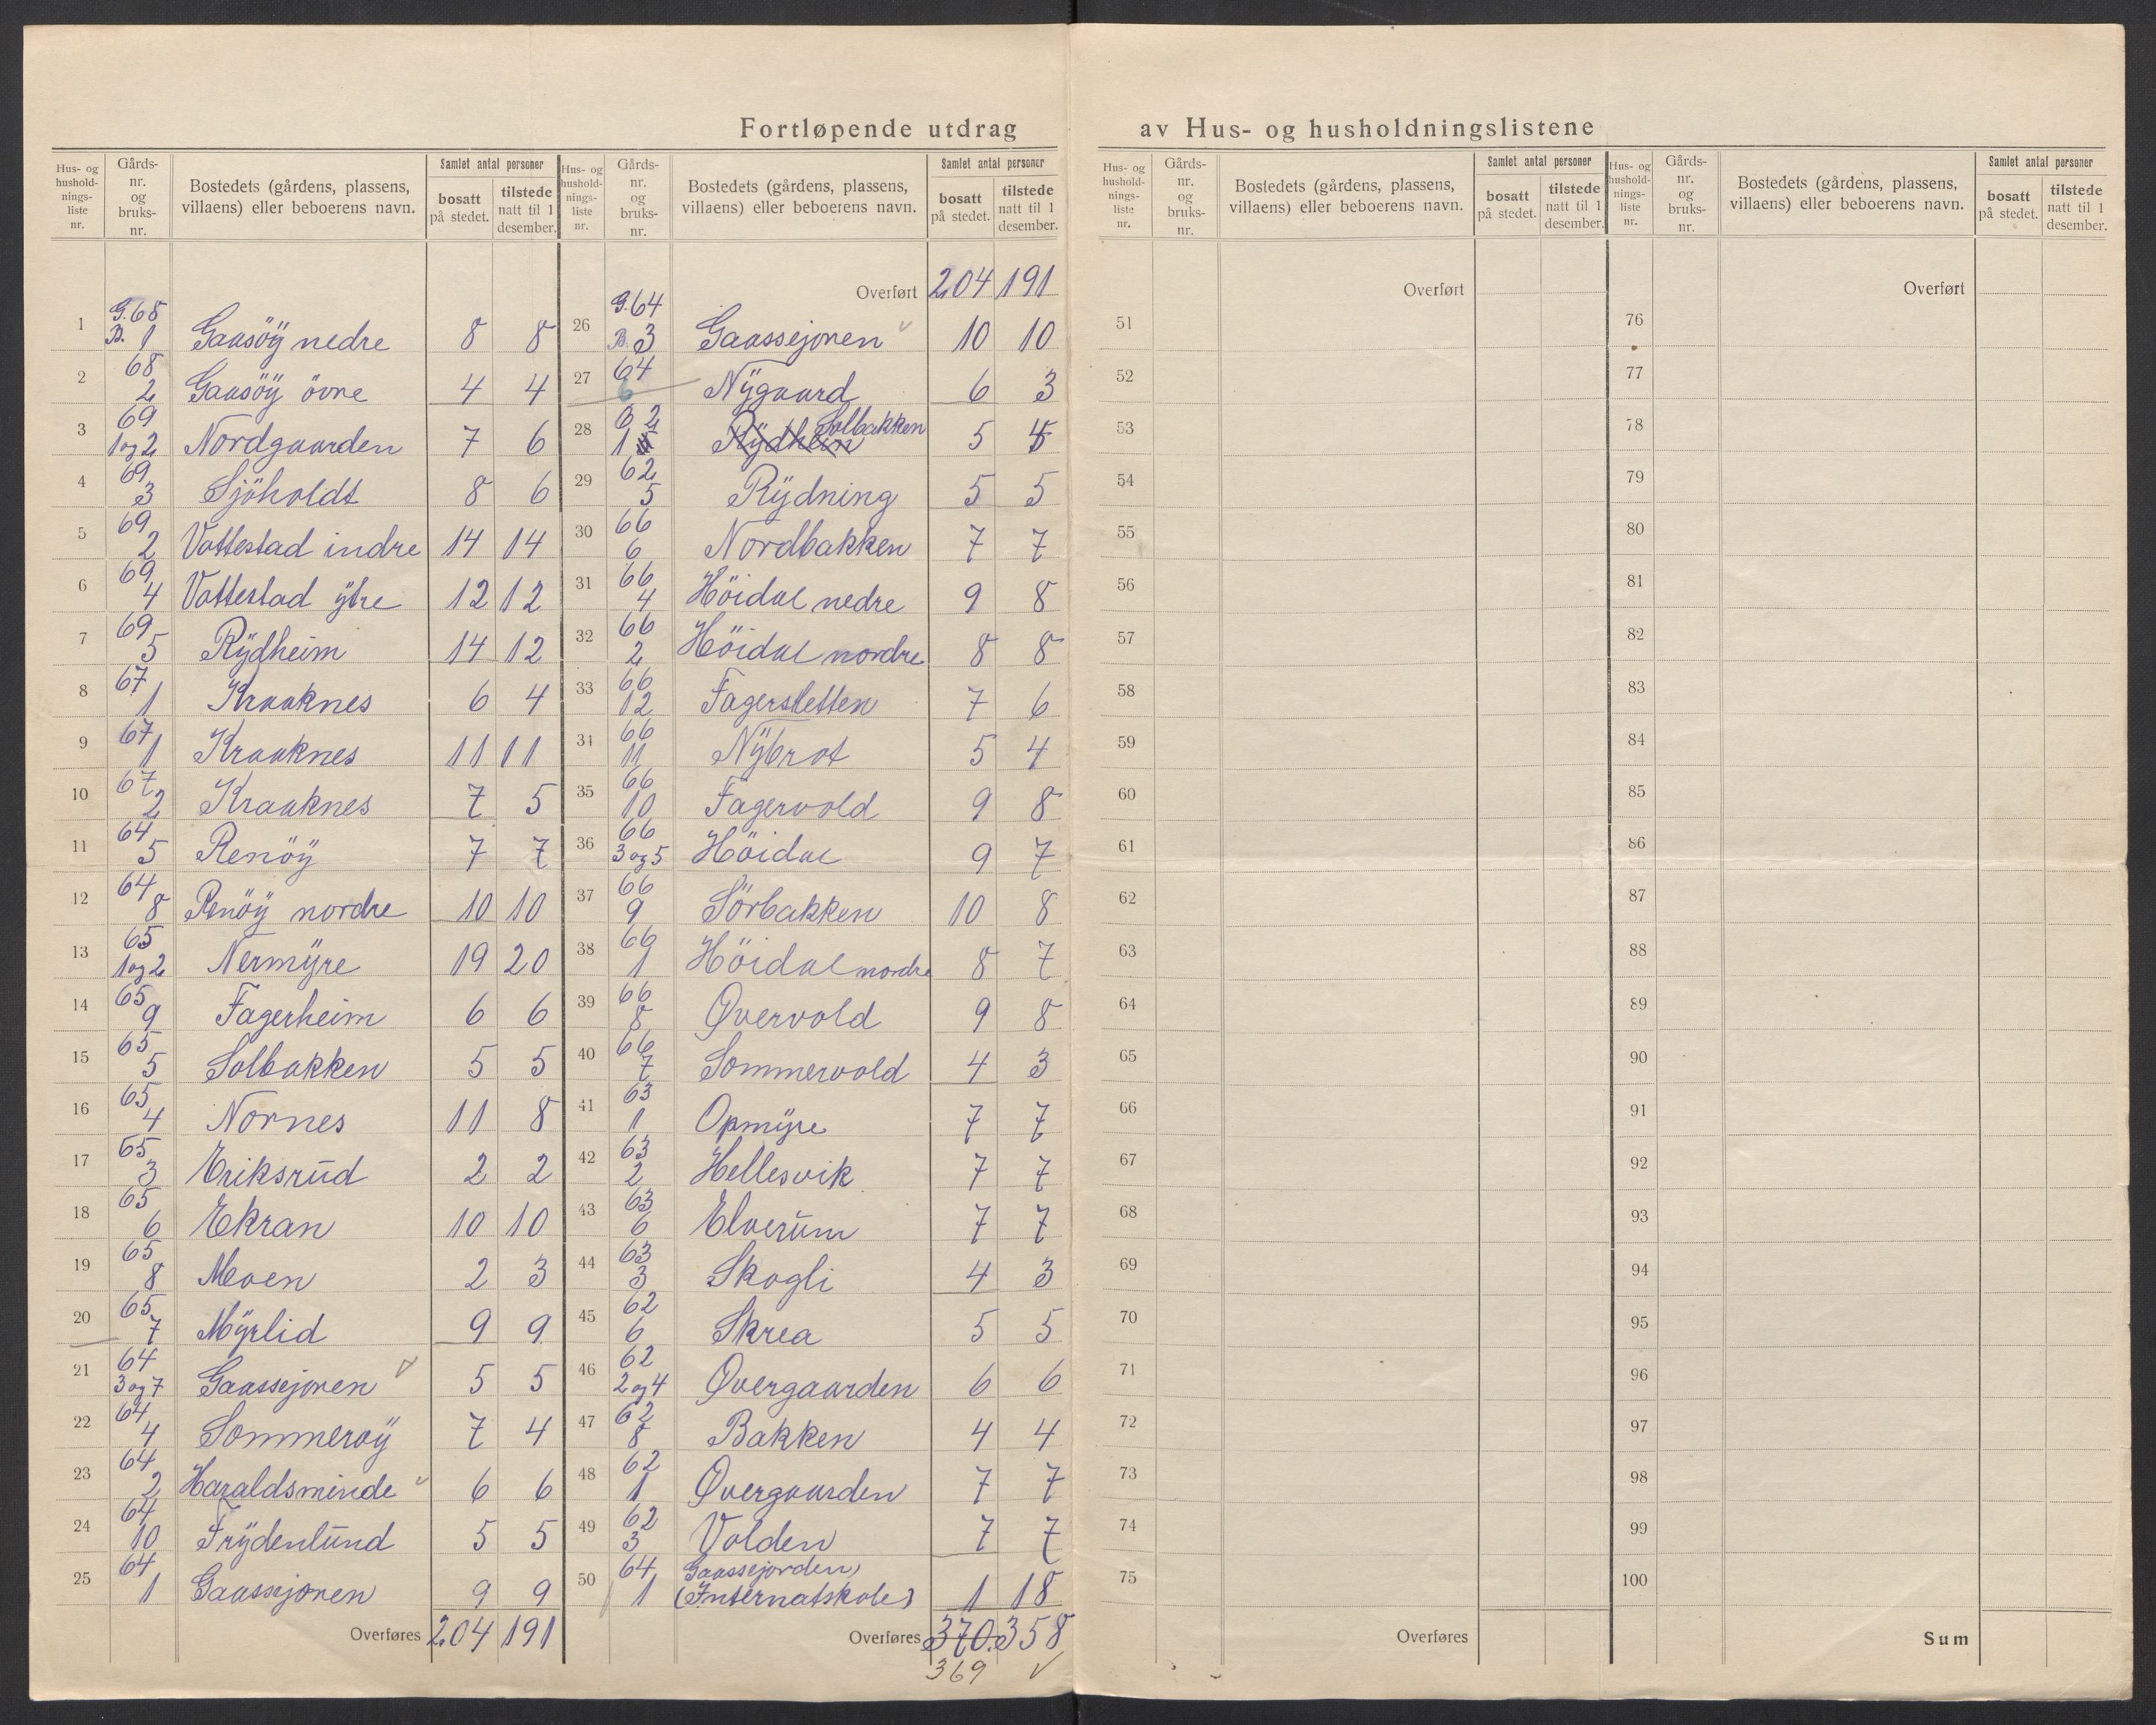 Fortløpende utdrag av Hus- og husholdningslistene
Hus- og hushold-nings-liste nr. | Gårds-nr. og bruks-nr. | Bostedets (gårdens, plassens, villaens) eller beboerens navn. | Samlet antal personer | bosatt på stedet. | tilstede natt til 1 desember.
1 G. 68 B. 1 Gaasöÿ nedre 8 8
2 68 2 Gaasöÿ övre 4 4
3 69 1 og 2 Nordgaarden 7 6
4 69 3 Sjöholdt 8 6
5 69 2 Vattestad indre 14 14
6 69 4 Vattestad ÿtre 12 12
7 69 5 Rÿdheim 14 12
8 67 1 Kraaknes 6 4
9 67 1 Kraaknes 11 11
10 67 2 Kraaknes 7 5
11 64 5 Renöÿ 7 7
12 64 8 Renöÿ nordre 10 10
13 65 1 og 2 Nermÿre 19 20
14 65 9 Fagerheim 6 6
15 65 5 Solbakken 5 5
16 65 4 Nornes 11 8
17 65 3 Eriksrud 2 2
18 65 6 Ekran 10 10
19 65 8 Moen 2 3
20 65 7 Mÿrlid 9 9
21 64 3 og 7 Gaassejoren 5 5
22 64 4 Sommeroÿ 7 4
23 64 2 Haraldsminde 6 6
24 64 10 Frÿdenlund 5 5
25 64 1 Gaassejoren 9 9
Overføres 204 191
Hus- og hushold-nings-liste nr. | Gårds-nr. og bruks-nr. | Bostedets (gårdens, plassens, villaens) eller beboerens navn. | Samlet antal personer | bosatt på stedet. | tilstede natt til 1 desember.
Overført 204 191
26 G. 64 B. 3 Gaassejoren 10 10
27 64 6 Nÿgaard 6 3
28 62 1 Rÿdheim Solbakken 5
29 62 5 Rÿdning 5 5
30 66 6 Nordbakken 7 7
31 66 4 Höidal nedre 9 8
32 66 2 Höidal nordre 8 8
33 66 12 Fagersletten 7 6
34 66 11 Nÿbrot 5 4
35 66 10 Fagervold 9 8
36 66 3 og 5 Höidal 9 7
37 66 9 Sörbakken 10 8
38 66 1 Höidal nordre 8 7
39 66 8 Øvervold 9 8
40 66 7 Sommervold 4 3
41 63 1 Opmÿre 7 7
42 63 2 Hellesvik 7 7
43 63 6 Elverum 7 7
44 63 3 Skogli 4 3
45 62 6 Skrea 5 5
46 62 2 og 4 Øvergaarden 6 6
47 62 8 Bakken 4 4
48 62 1 Øvergaarden 7 7
49 62 3 Volden 7 7
50 64 1 Gaassejorden (Internatskole) 1 18
Overføres 370 358
369
Hus- og hushold-nings-liste nr. | Gårds-nr. og bruks-nr. | Bostedets (gårdens, plassens, villaens) eller beboerens navn. | Samlet antal personer | bosatt på stedet. | tilstede natt til 1 desember.
Overført
51
52
53
54
55
56
57
58
59
60
61
62
63
64
65
66
67
68
69
70
71
72
73
74
75
Overføres
Hus- og hushold-nings-liste nr. | Gårds-nr. og bruks-nr. | Bostedets (gårdens, plassens, villaens) eller beboerens navn. | Samlet antal personer | bosatt på stedet. | tilstede natt til 1 desember.
Overført
76
77
78
79
80
81
82
83
84
85
86
87
88
89
90
91
92
93
94
95
96
97
98
99
100
Sum